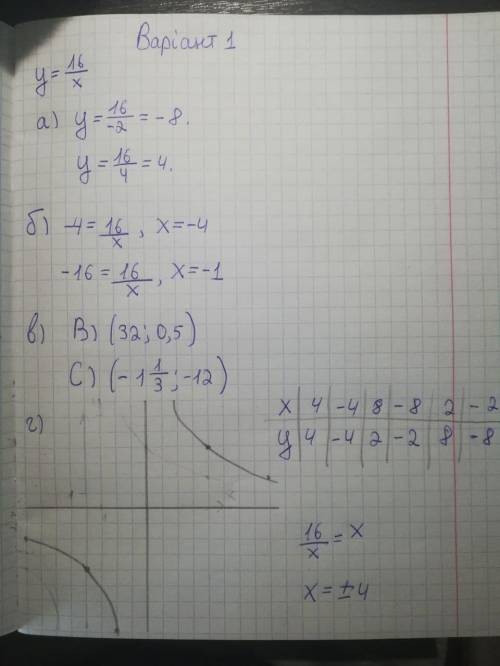 Варіант 1
y = 16/x
а) y = 16/-2 = -8.
y = 16/4 = 4.
б) -4 = 16/x, x = -4
-16 = 16/x, x = -1
в) B) (32; 0,5)
C) (-1 1/3; -12)
г)
x | 4 | -4 | 8 | -8 | 2 | -2
y | 4 | -4 | 2 | -2 | 8 | -8
16/x = x
x = ±4